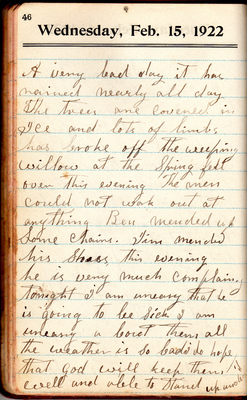 46
Wednesday, Feb. 15, 1922
A very bad day it has
rained nearly all day
The trees are covered in
Ice and lots of limbs
has broke off the weeping
willow at the Spring fell
over this evening The men
could not work out at
anything Ben mended up
Some chains. Jim mended
his Shoes this evening
he is very much complaing
tonight I am uneasy that he
is going to be Sick I am
uneasy a bout them all
the weather is so bad I do hope
that God will keep them
well and able to Stand up